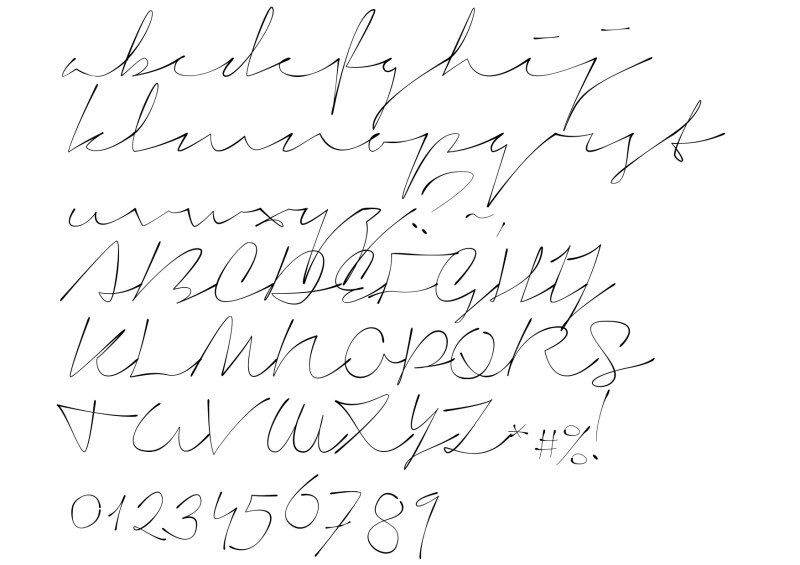 abcdefghij
klmnopqrst
uvwxyz:?~,
ABCDEFGHIJ
KLMNOPQRS
TUVWXYZ*#%!
0123456789